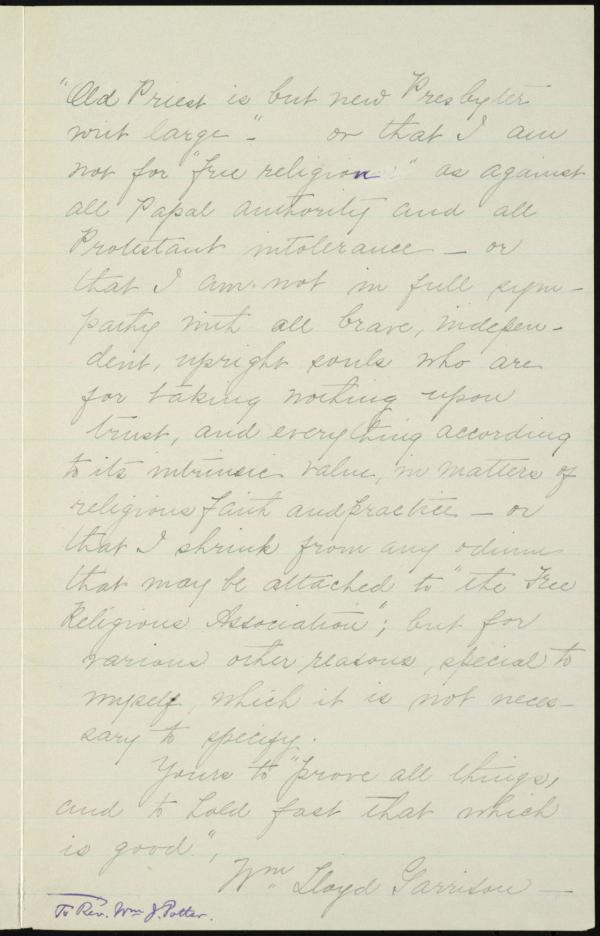 "Old Priest is but new Presbyter
writ large" - or that I am
not for "free religion," as against
all Papal authority and all
Protestant intolerance — or
that I am not in full sym-
pathy with all brave, indepen-
dent, upright souls who are
for taking nothing upon
trust, and everything according
to its intrinsic value, in matters of
religious faith and practice — or
that I shrink from any odium
that may be attached to "the Free
Religious Association"; but for
various other reasons, special to
myself, which it is not neces-
sary to specify.
Yours to "prove all things,
and to hold fast that which
is good",
Wm. Lloyd Garrison —
To Rev. Wm J. Potter.